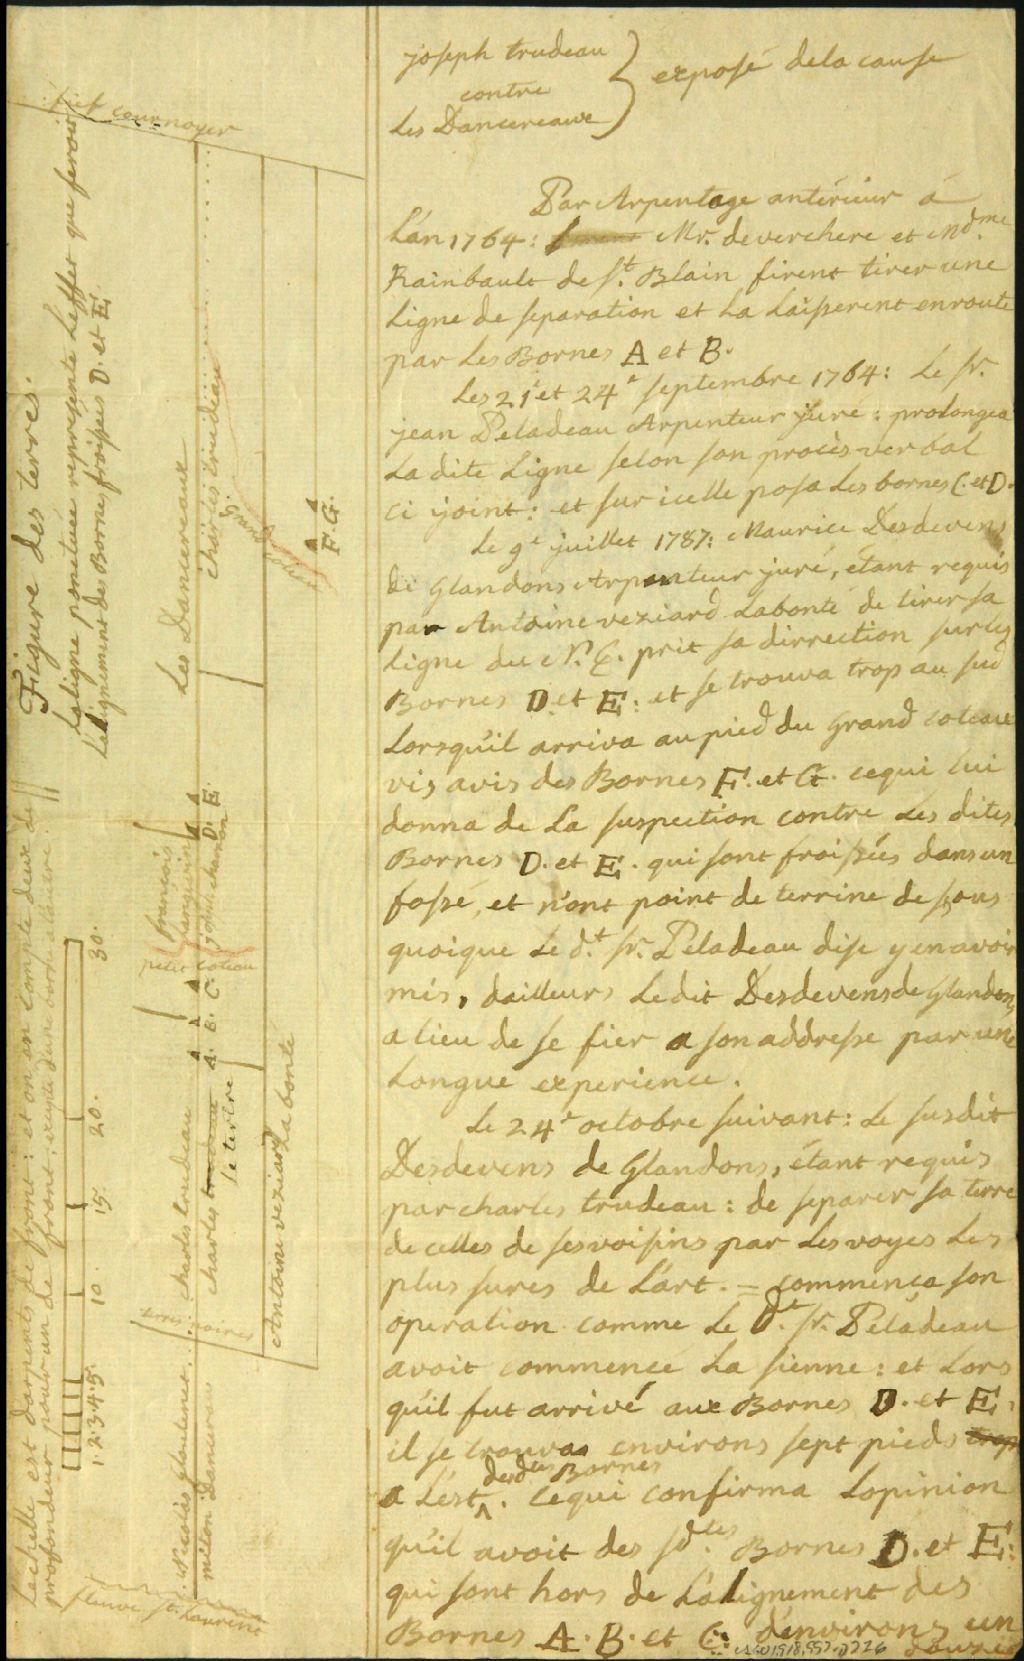 joseph trudeau
contre
Les Dancereaux
exposé dela cause
Par Arpentage antérieur á
L'an 1764: Mr. deverchere et Mdme
Rainbault de st. Blain firent tirer une
Ligne de separation et La Laisserent enroute
par Les Bornes A et B.
Les 21e et 24e septembre 1764: Le sr.
jean Peladeau Arpenteur juré: prolongea
La dite Ligne selon son procès verbal
ci joint: et sur icelle posa Les bornes C. et D.
Le 9e juillet 1787: Maurice Desdevens
de Glandons Arpenteur juré, étant requis
par Antoine veziard Labonté de tirer sa
Ligne du N. E. prit sa dirrection sur les
Bornes D. et E: et se trouva trop au sud
Lorsqu'il arriva au pied du Grand coteau
vis avis des Bornes F. et G. cequi lui
donna de La suspection contre Les dites
Bornes D. et E. qui sont froissées dans un
fossé, et n'ont point de terrine de ssous
quoique Le dt. sr. Peladeau dise y en avoir
mis, dailleurs Ledit Desdevens de Glandons
a lieu de se fier a son addresse par une
Longue experience.
Le 24e octobre suivant: Le susdit
Desdevens de Glandons, étant requis
par charles trudeau: de separer sa terre
de celles de ses voisins par Les voyes Les
plus sures de L'art. = commença son
operation comme Le dt. sr. Péladeau
avoit commencé La sienne: et Lors
qu'il fut arrivé aux Bornes D. et E.
il se trouva environs sept pieds trop
desdtes Bornes
a L'est ^. cequi confirma Lopinion
qu'il avoit des sdtes. Bornes D. et E:
qui sont hors de L'alignement des
Bornes A. B. et C: d'environs un
Figure des terres.
La ligne ponctuée represente Leffet que feroit
L'alignement des Bornes froissées D. et E.
Lechelle est d'arpents de front: et on en compte deux de
profondeur pour un de front;
1. 2. 3. 4. 5. 10 15 20. 30.
fief cournoyer
Les Dancereaux
charles trudeau
Grand coteau
F. G.
françois
D. E.
petit coteau
A. B. C.
charles trudeau
charles
le tertre
Antoine veziard La bonté
terres noires
Nicolas
milon Dancerau
fleuve st. Laurent